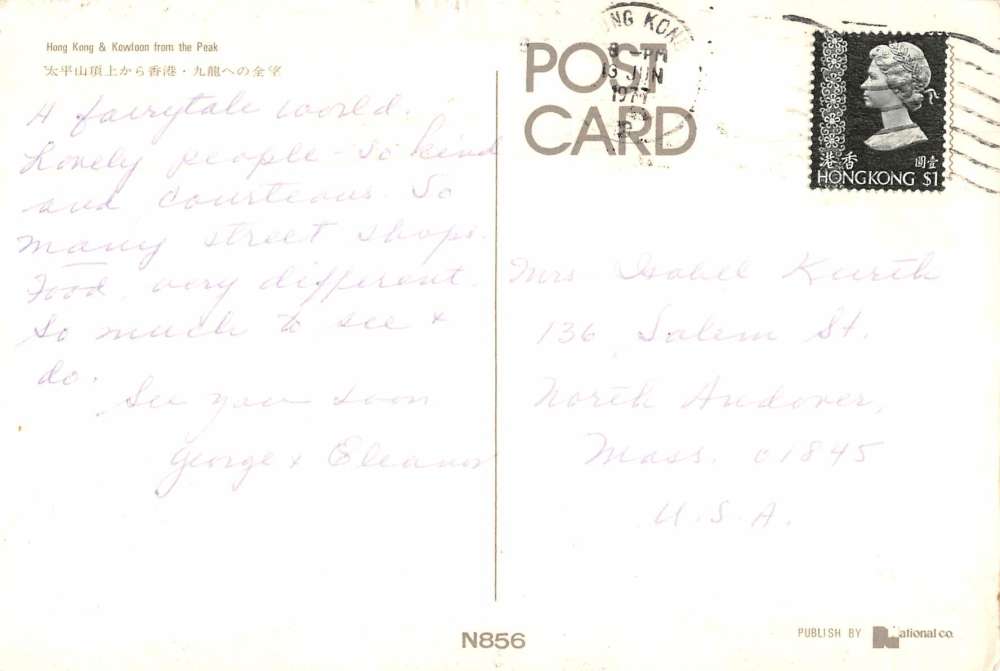 Hong Kong & Kowloon from the Peak
太平山頂上から香港・九龍への全望
A fairytale world.
Lovely people - so kind
and courteous. So
many street shops.
Food very different.
So much to see &
do.
See you soon
George & Eleanor
POST
CARD
HONG KONG
8 - PM
13 JUN
1977
香港
壹圓
HONG KONG $1
Mrs Isabel Kurth
136 Salem St.
North Andover,
Mass. 01845
U.S.A.
N856
PUBLISH BY National co.